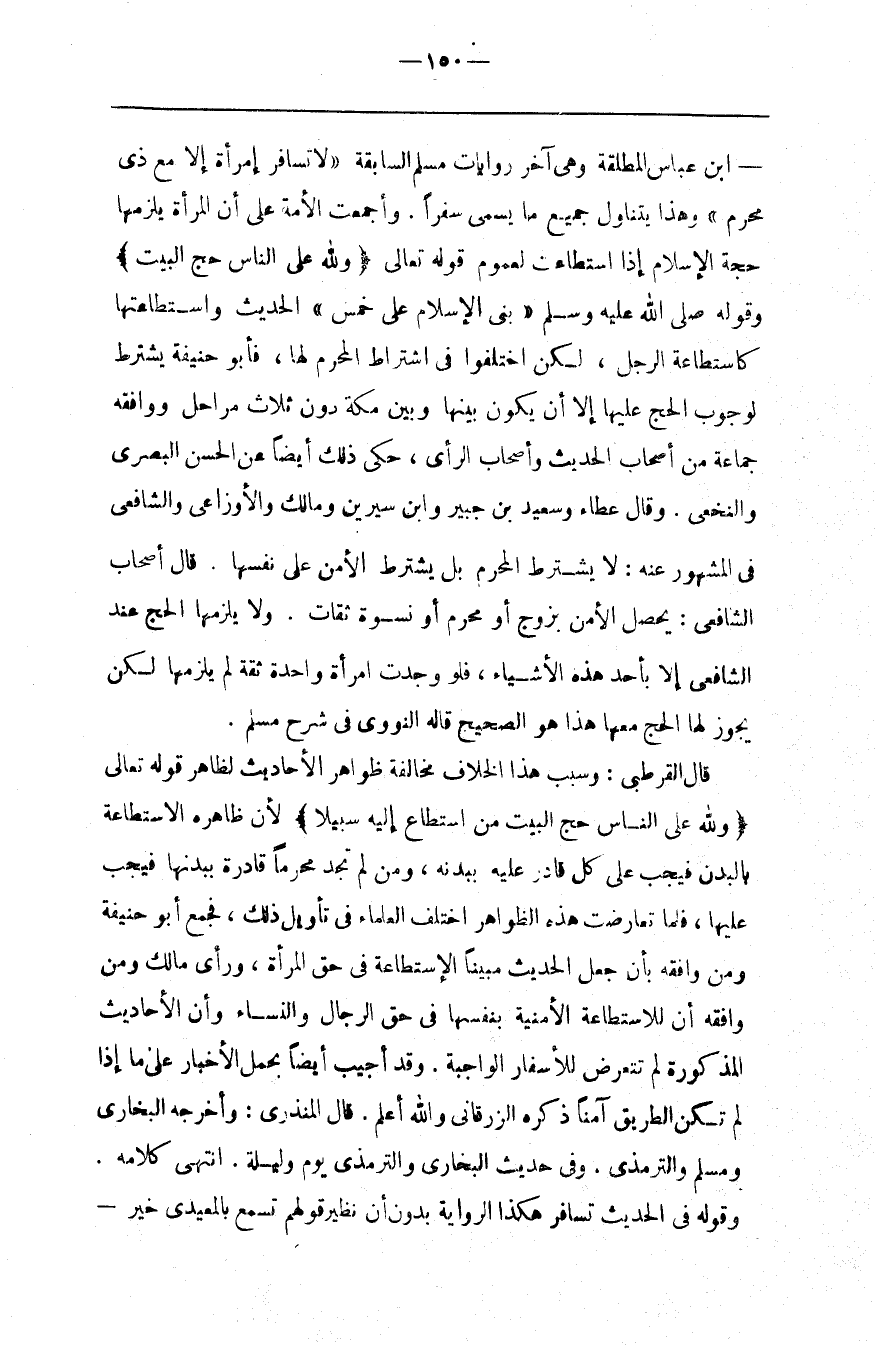 — ١٥٠ —
— ابن عباس المطلقة وهى آخر روايات مسلم السابقة «لا تسافر إمرأة إلا مع ذى
محرم» وهذا يتناول جميع ما يسمى سفراً . وأجمعت الأمة على أن المرأة يلزمها
حجة الإسلام إذا استطاعت لعموم قوله تعالى ﴿ ولله على الناس حج البيت ﴾
وقوله صلى الله عليه وسلم « بنى الإسلام على خمس » الحديث واستطاعتها
كاستطاعة الرجل ، لكن اختلفوا فى اشتراط المحرم لها ، فأبو حنيفة يشترط
لوجوب الحج عليها إلا أن يكون بينها وبين مكة دون ثلاث مراحل ووافقه
جماعة من أصحاب الحديث وأصحاب الرأى ، حكى ذلك أيضاً عن الحسن البصرى
والنخعى . وقال عطاء وسعيد بن جبير وابن سيرين ومالك والأوزاعى والشافعى
فى المشهور عنه : لا يشترط المحرم بل يشترط الأمن على نفسها . قال أصحاب
الشافعى : يحصل الأمن بزوج أو محرم أو نسوة ثقات . ولا يلزمها الحج عند
الشافعى إلا بأحد هذه الأشياء ، فلو وجدت امرأة واحدة ثقة لم يلزمها لكن
يجوز لها الحج معها هذا هو الصحيح قاله النووى فى شرح مسلم .
قال القرطبى : وسبب هذا الخلاف مخالفة ظواهر الأحاديث لظاهر قوله تعالى
﴿ ولله على الناس حج البيت من استطاع إليه سبيلا ﴾ لأن ظاهره الاستطاعة
بالبدن فيجب على كل قادر عليه ببدنه ، ومن لم تجد محرماً قادرة ببدنها فيجب
عليها ، فلما تعارضت هذه الظواهر اختلف العلماء فى تأويل ذلك ، فجمع أبو حنيفة
ومن وافقه بأن جعل الحديث مبيناً الإستطاعة فى حق المرأة ، ورأى مالك ومن
وافقه أن للاستطاعة الأمنية بنفسها فى حق الرجال والنساء وأن الأحاديث
المذكورة لم تتعرض للأسفار الواجبة . وقد أجيب أيضاً بحمل الأخبار على ما إذا
لم تكن الطريق آمناً ذكره الزرقانى والله أعلم . قال المنذرى : وأخرجه البخارى
ومسلم والترمذى . وفى حديث البخارى والترمذى يوم وليلة . انتهى كلامه .
وقوله فى الحديث تسافر هكذا الرواية بدون أن نظير قولهم تسمع بالمعيدى خير —